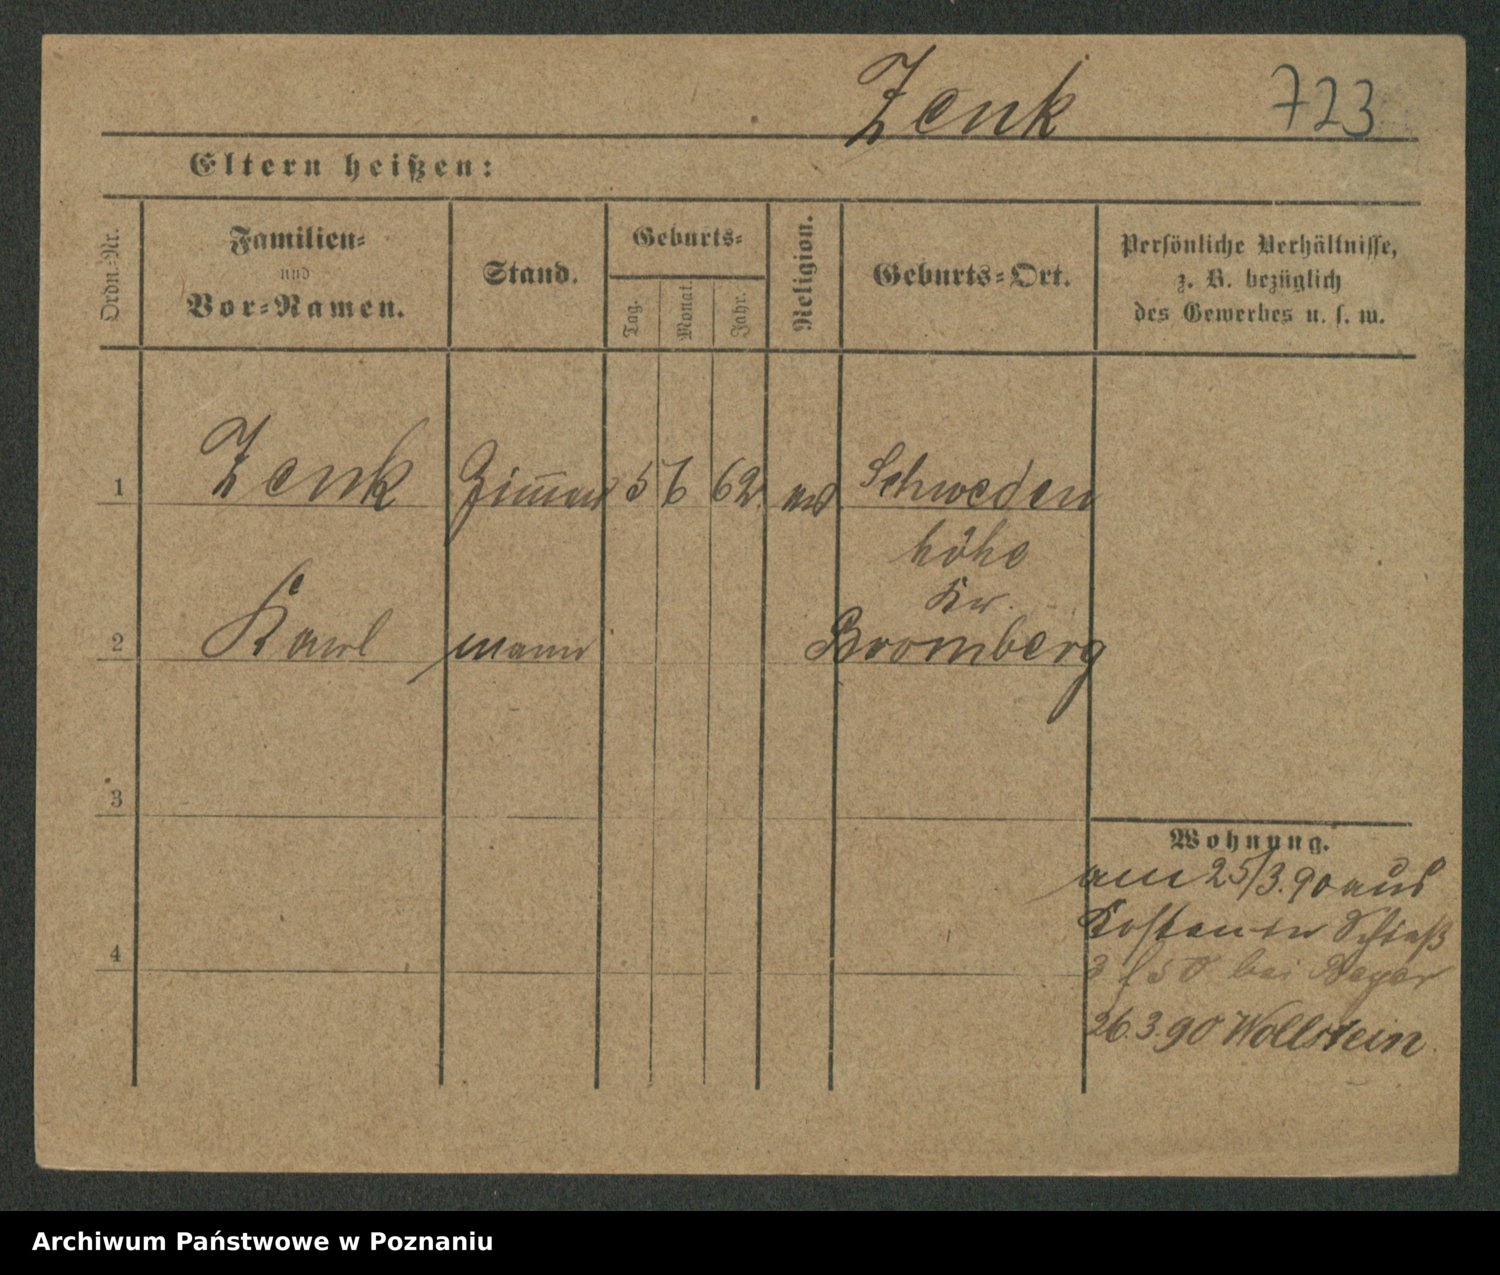 Zenk 723
Eltern heißen:
Ordn.-Nr.
Familien-
und
Vor-Namen.
Stand.
Geburts-
Tag.
Monat.
Jahr.
Religion.
Geburts-Ort.
Persönliche Verhältnisse,
z. B. bezüglich
des Gewerbes u. s. w.
1 Zenk Zimmer 5 6 62. Schweden
höhe
Kr.
2 Karl mann Bromberg
3
Wohnung.
am 25/3.90 aus
4
bei Beyer
26.3.90 Wollstein
Archiwum Państwowe w Poznaniu